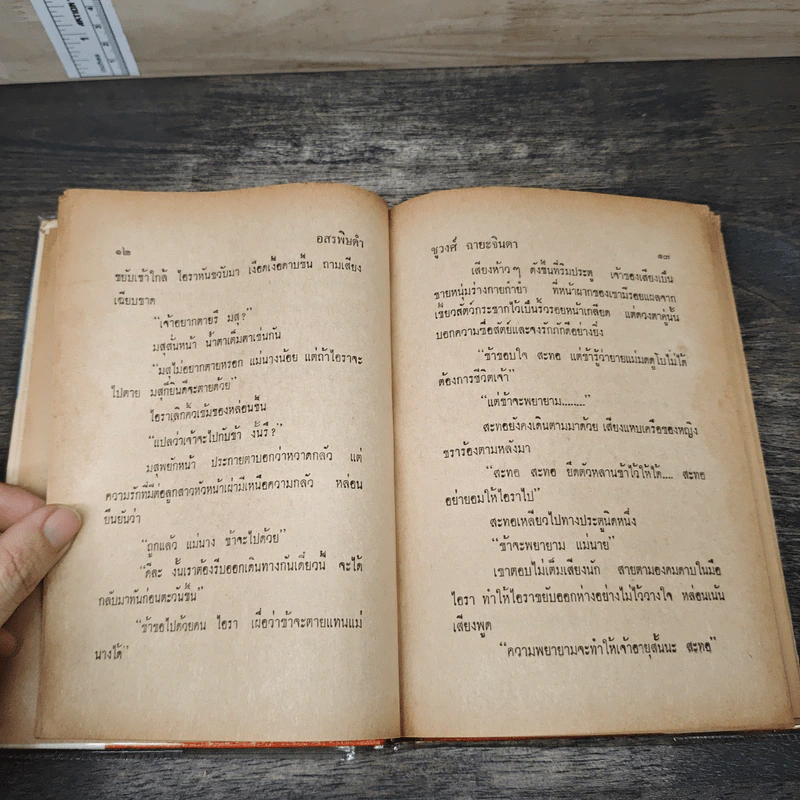 ๑๒ อสรพิษดำ
ขยับเข้าใกล้ ไอราหันขวับมา เงือดเงื้อดาบขึ้น ถามเสียง
เฉียบขาด
“เจ้าอยากตายรึ มสุ?”
มสุสั่นหน้า น้ำตาเต็มตาเช่นกัน
“มสุไม่อยากตายหรอก แม่นางน้อย แต่ถ้าไอราจะ
ไปตาย มสุก็ยินดีจะตายด้วย”
ไอราเลิกคิ้วเข้มของหล่อนขึ้น
“แปลว่าเจ้าจะไปกับข้า งั้นรึ?”
มสุพยักหน้า ประกายตาบอกว่าหวาดกลัว แต่
ความรักที่มีต่อลูกสาวหัวหน้าเผ่ามีเหนือความกลัว หล่อน
ยืนยันว่า
“ถูกแล้ว แม่นาง ข้าจะไปด้วย”
“ดีละ งั้นเราต้องรีบออกเดินทางกันเดี๋ยวนี้ จะได้
กลับมาทันก่อนตะวันขึ้น”
“ข้าขอไปด้วยคน ไอรา เผื่อว่าข้าจะตายแทนแม่
นางได้”
ชูวงศ์ ฉายะจินดา
๑๓
เสียงห้าวๆ ดังขึ้นที่ริมประตู เจ้าของเสียงเป็น
ชายหนุ่มร่างกายกำยำ ที่หน้าผากของเขามีรอยแผลจาก
เขี้ยวสัตว์กระชากไว้เป็นริ้วรอยหน้าเกลียด แต่ดวงตาคู่นั้น
บอกความซื่อสัตย์และจงรักภักดีอย่างยิ่ง
“ข้าขอบใจ สะทอ แต่ข้ารู้ว่ายายแม่มดดูโบไม่ได้
ต้องการชีวิตเจ้า”
“แต่ข้าจะพยายาม........”
สะทอยังคงเดินตามมาด้วย เสียงแหบเครือของหญิง
ชราร้องตามหลังมา
“สะทอ สะทอ ยึดตัวหลานข้าไว้ให้ได้.... สะทอ
อย่ายอมให้ไอราไป”
สะทอเหลียวไปทางประตูนิดหนึ่ง
“ข้าจะพยายาม แม่นาย”
เขาตอบไม่เต็มเสียงนัก สายตามองคมดาบในมือ
ไอรา ทำให้ไอราขยับออกห่างอย่างไม่ไว้วางใจ หล่อนเน้น
เสียงพูด
“ความพยายามจะทำให้เจ้าอายุสั้นนะ สะทอ”